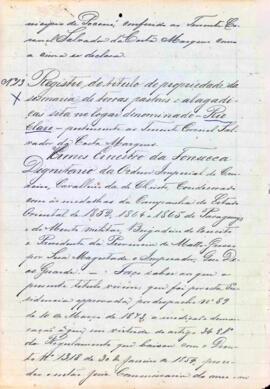 municipio de Poconé, conferido ao Tenente Co-
ronel Salvador da Costa Marques como
acima se declara
Nº 13
Registro do titulo de propriedade da
sesmaria de terras pastaes e alagadi-
ças sita no logar denominado - Rio
Claro - pertencente ao Tenente Coronel Sal-
vador da Costa Marques
Hermes Ernesto da Fonseca
Dignitario da Ordem Imperial do Cru-
zeiro, Cavalleiro da de Christo, Condecorado
com as medalhas da Campanha do Estado
Oriental de 1852, 1864 e 1865 do Paraguay
e do Merito militar, Brigadeiro do Exercito
e Presidente da Provincia de Matto Grosso
por Sua Magestade o Imperador, Que De-
os Guarde - Faço saber aos que o
presente titulo virem, que foi por esta Pre-
sidencia approvada por despacho nº 89
de 10 de Março de 1876 a medição e demar-
cação a que em virtude do artigo
do Regulamento que baixou com o Decre-
to Nº 1318 de 30 de Janeiro de 1854, proce-
deu o Juiz Commissario